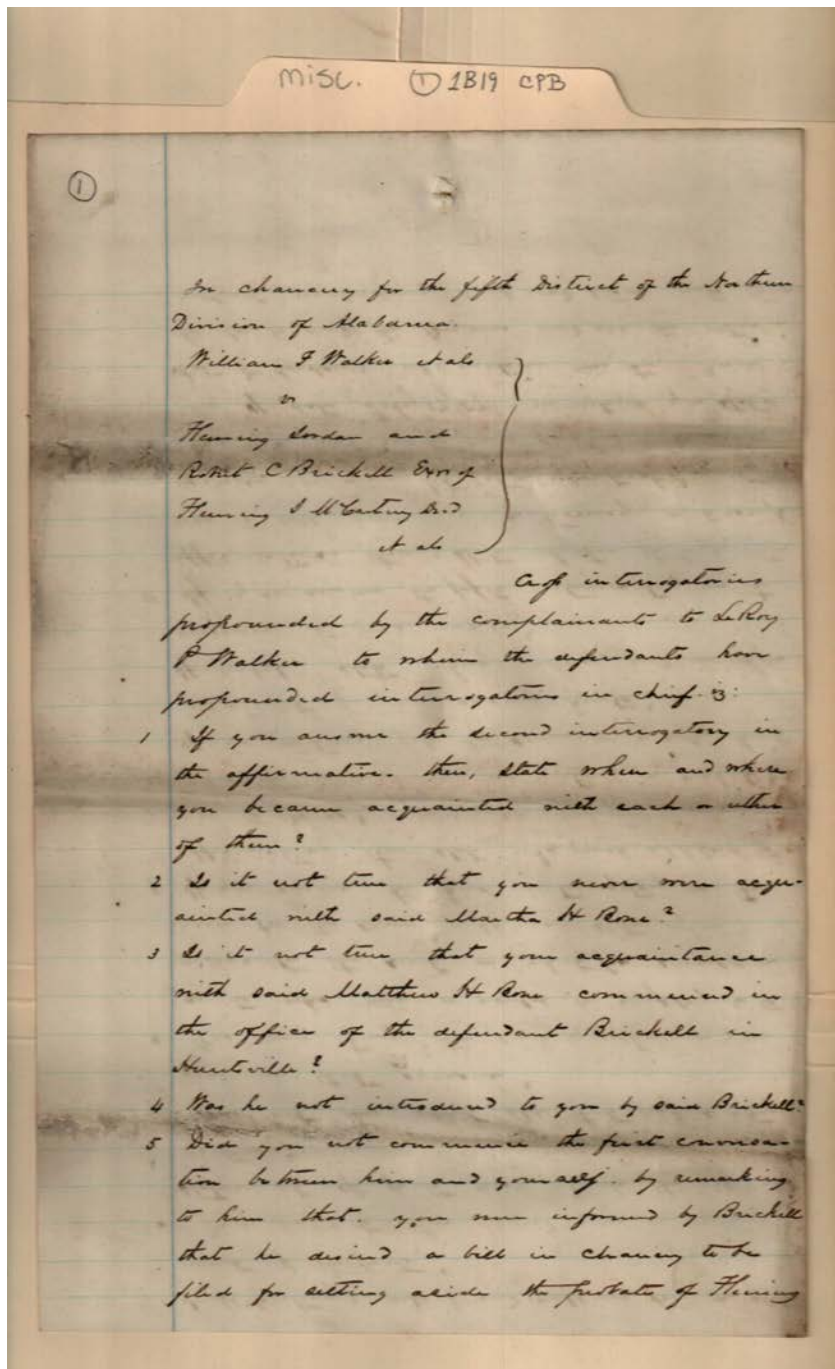 misc. ① 1B19 CPB
①
In chancery for the fifth District of the Northern
Division of Alabama.
William F Walker et als
vs
Fleming Jordan and
Robert C Brickell Exrs of
Fleming J McCartney Decd
et als
Cross interrogatories
propounded by the complainants to LeRoy
P Walker to whom the defendants have
propounded interrogatories in chief.
1 If you answer the second interrogatory in
the affirmative. then, state when and where
you became acquainted with each or either
of them?
2 Is it not true that you never were acqu-
ainted with said Martha H Bone?
3 Is it not true that your acquaintance
with said Matthew H Bone commenced in
the office of the defendant Brickell in
Huntsville?
4 Was he not introduced to you by said Brickell?
5 Did you not commence the first conversa-
tion between him and yourself. by remarking
to him that. you were informed by Brickell
that he desired a bill in chancery to be
filed for setting aside the probate of Fleming